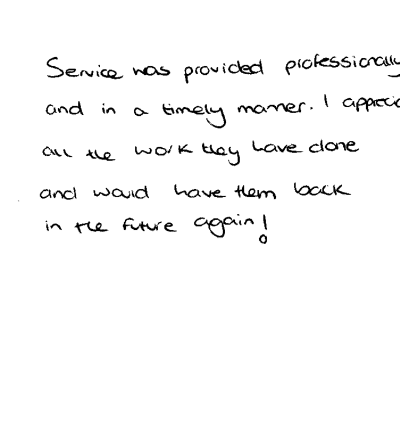 Service was provided professionally
and in a timely manner. I apprecia
all the work they have done
and would have them back
in the future again!